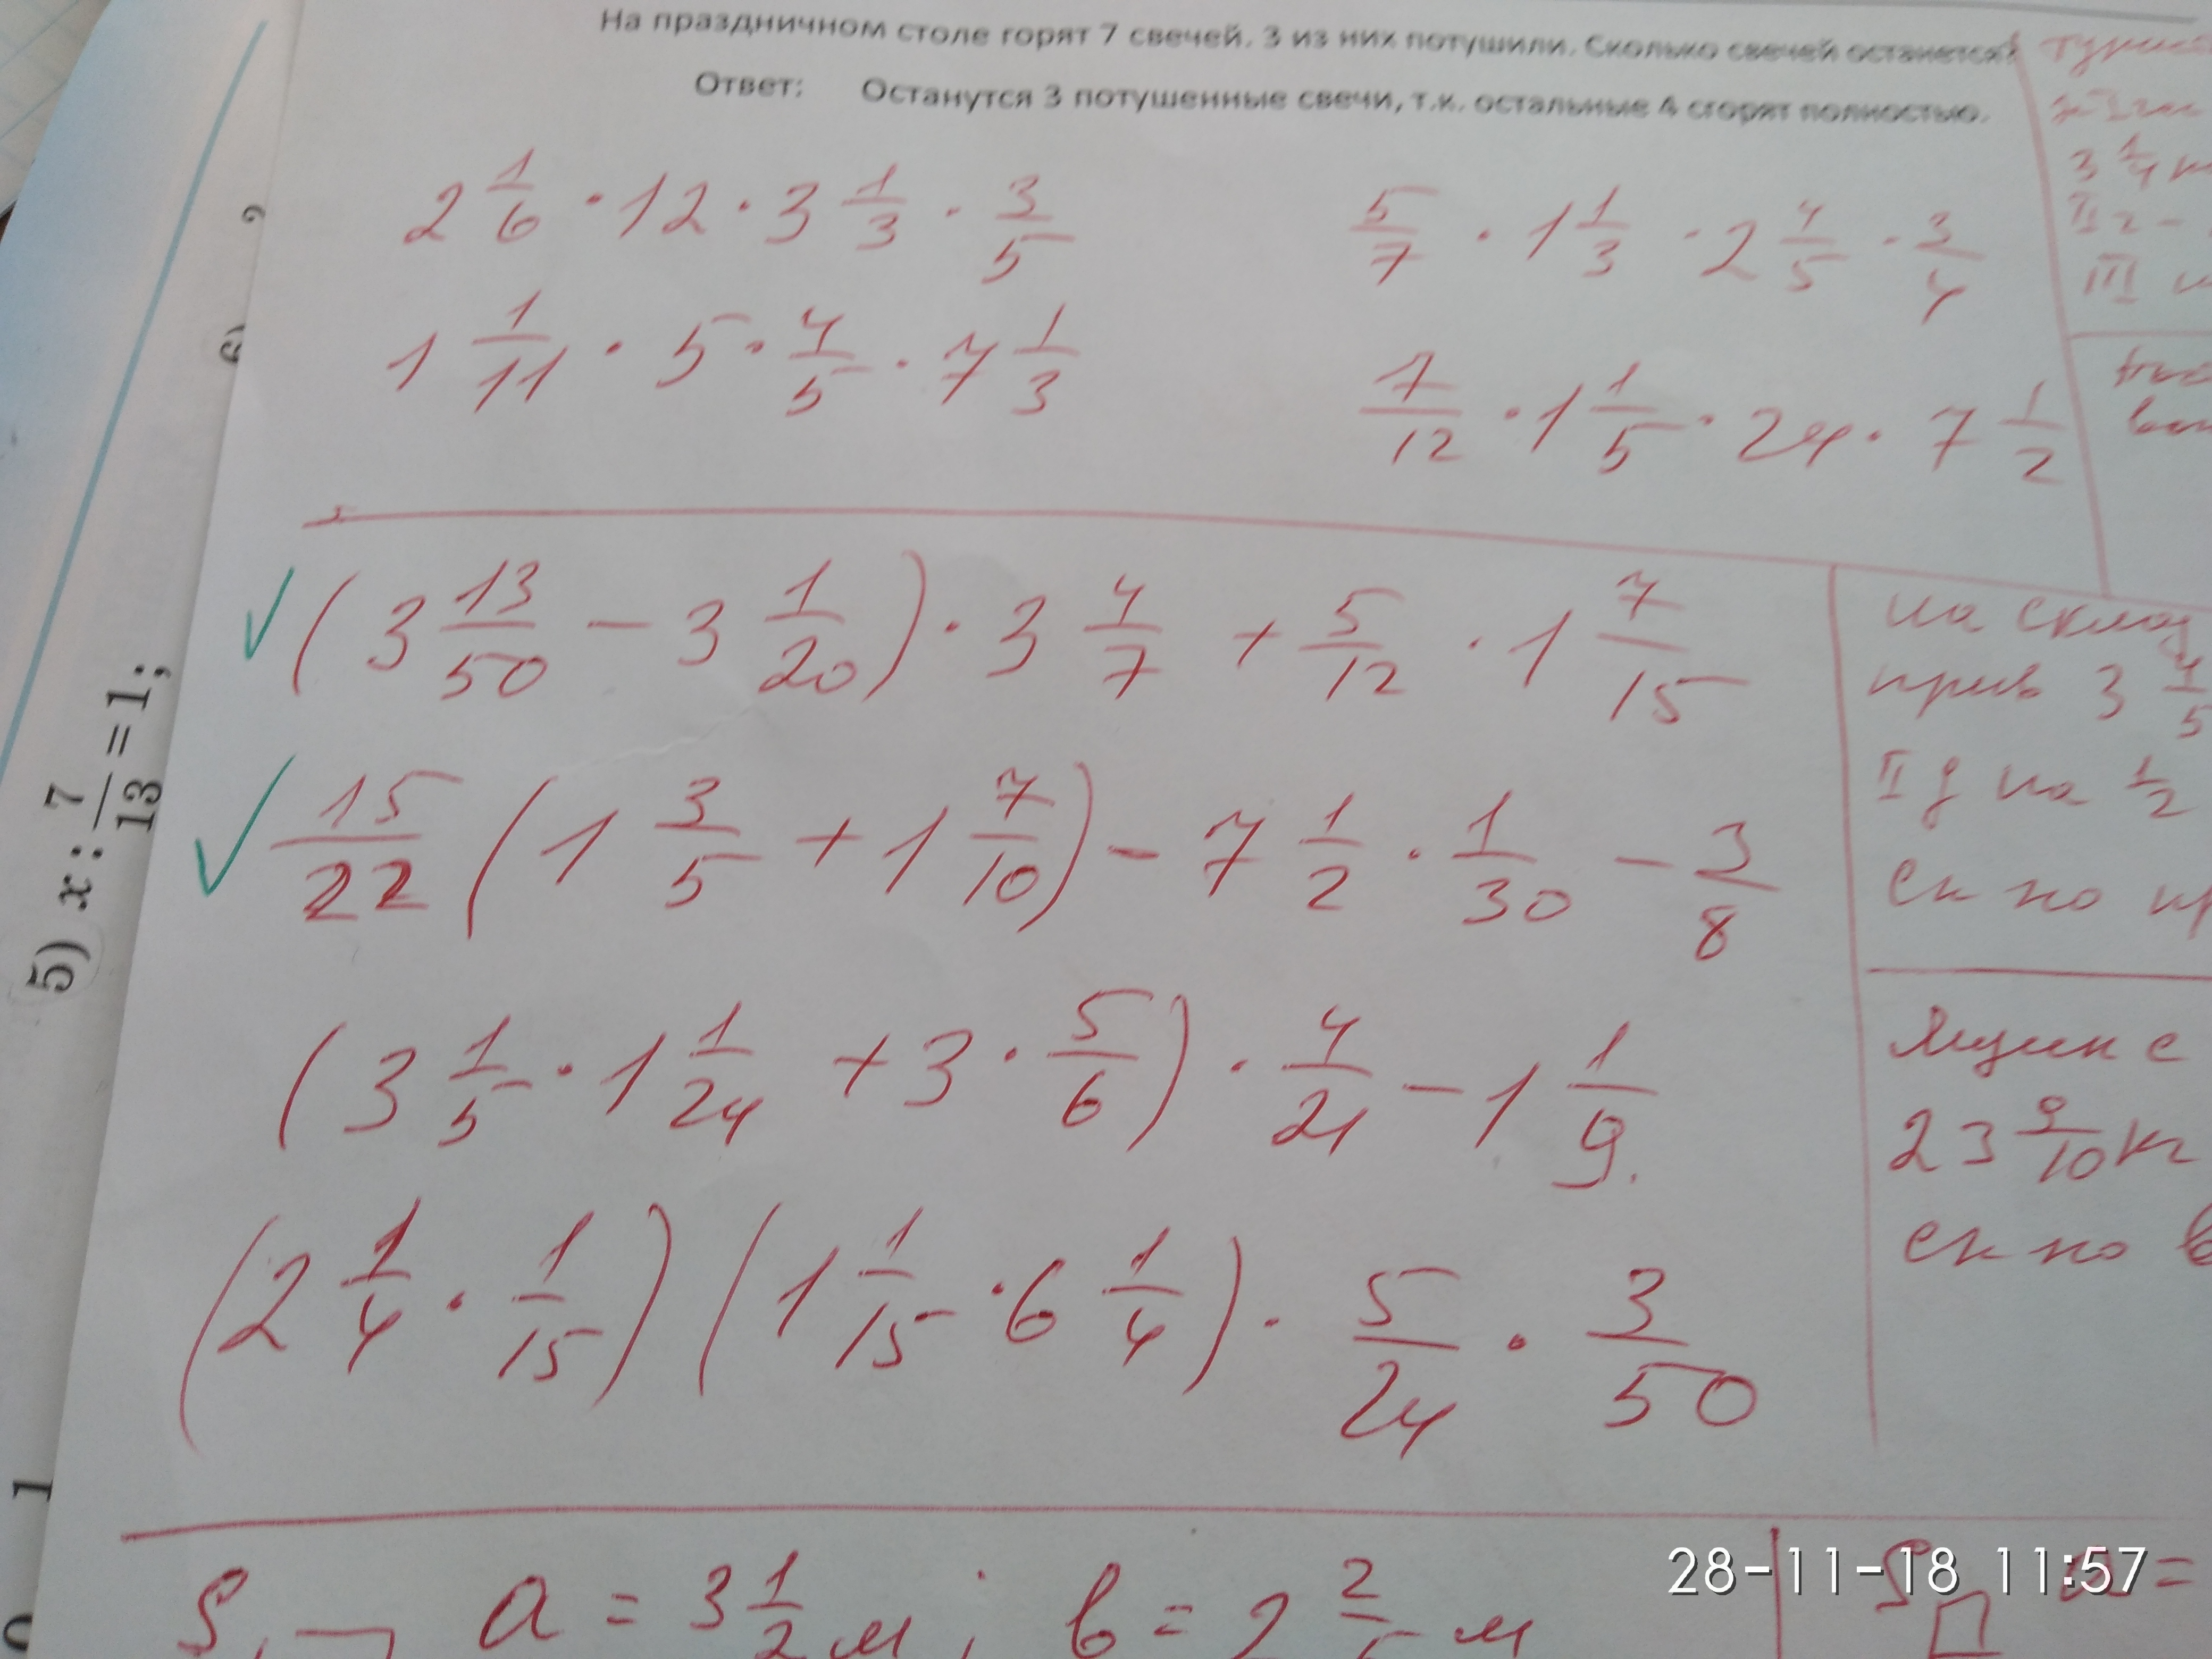 На праздничном столе горят 7 свечей. 3 из них потушили. Сколько свечей останется?
Ответ: Останутся 3 потушенные свечи, т.к. остальные 4 сгорят полностью.
2 1/6 · 12 · 3 1/3 · 3/5
5/7 · 1 1/3 · 2 4/5 · 3/4
1 1/11 · 5 · 4/5 · 7 1/3
7/12 · 1 1/5 · 24 · 7 1/2
3 1/4
II
III
(3 13/50 - 3 1/20) · 3 4/7 + 5/12 · 1 7/15
15/22 (1 3/5 + 1 7/10) - 7 1/2 · 1/30 - 3/8
(3 1/5 · 1 1/24 + 3 · 5/6) · 4/21 - 1 1/9.
(2 1/4 · 1/15) (1 1/15 · 6 1/4) · 5/24 · 3/50
на склад
прив 3 4/5
II д на 1/2
ск-но
Ящик с
23 9/10 кг
ск-но в
S a = 3 1/2 м; b = 2 2/5 м
S a =
5) x : 7/13 = 1;
6)
1
28-11-18 11:57